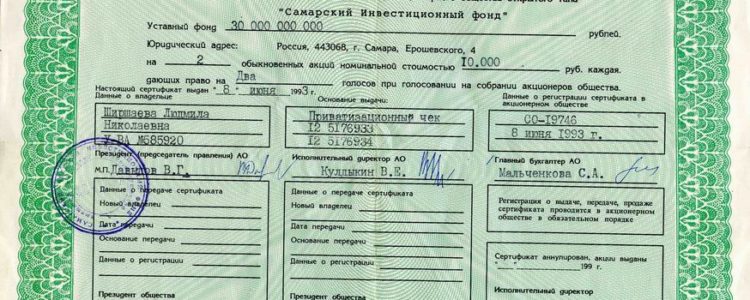 "Самарский Инвестиционный фонд"
Уставный фонд 30 000 000 000 рублей.
Юридический адрес: Россия, 443068, г. Самара, Ерошевского, 4
на 2 обыкновенных акций номинальной стоимостью 10.000 руб. каждая.
дающих право на Два голосов при голосовании на собрании акционеров общества.
Настоящий сертификат выдан "8" июня 1993 г.
Данные о владельце
Ширшаева Людмила
Николаевна
У-ВА №585920
Основание выдачи:
Приватизационный чек
I2 5I76933
I2 5I76934
Данные о регистрации сертификата в
акционерном обществе
СО-I9746
8 июня 1993 г.
Президент (председатель правления) АО
м.п. Давидов В.Г.
Исполнительный директор АО
Куллыкин В.Е.
Главный бухгалтер АО
Мальченкова С.А.
Данные о передаче сертификата
Новый владелец
Дата передачи
Основание передачи
Данные о регистрации
Президент общества
Данные о передаче сертификата
Новый владелец
Дата передачи
Основание передачи
Данные о регистрации
Президент общества
Регистрация о выдаче, передаче, продаже
сертификата проводится в акционерном
обществе в обязательном порядке
Сертификат аннулирован, акции выданы
" " 199 г.
Исполнительный директор